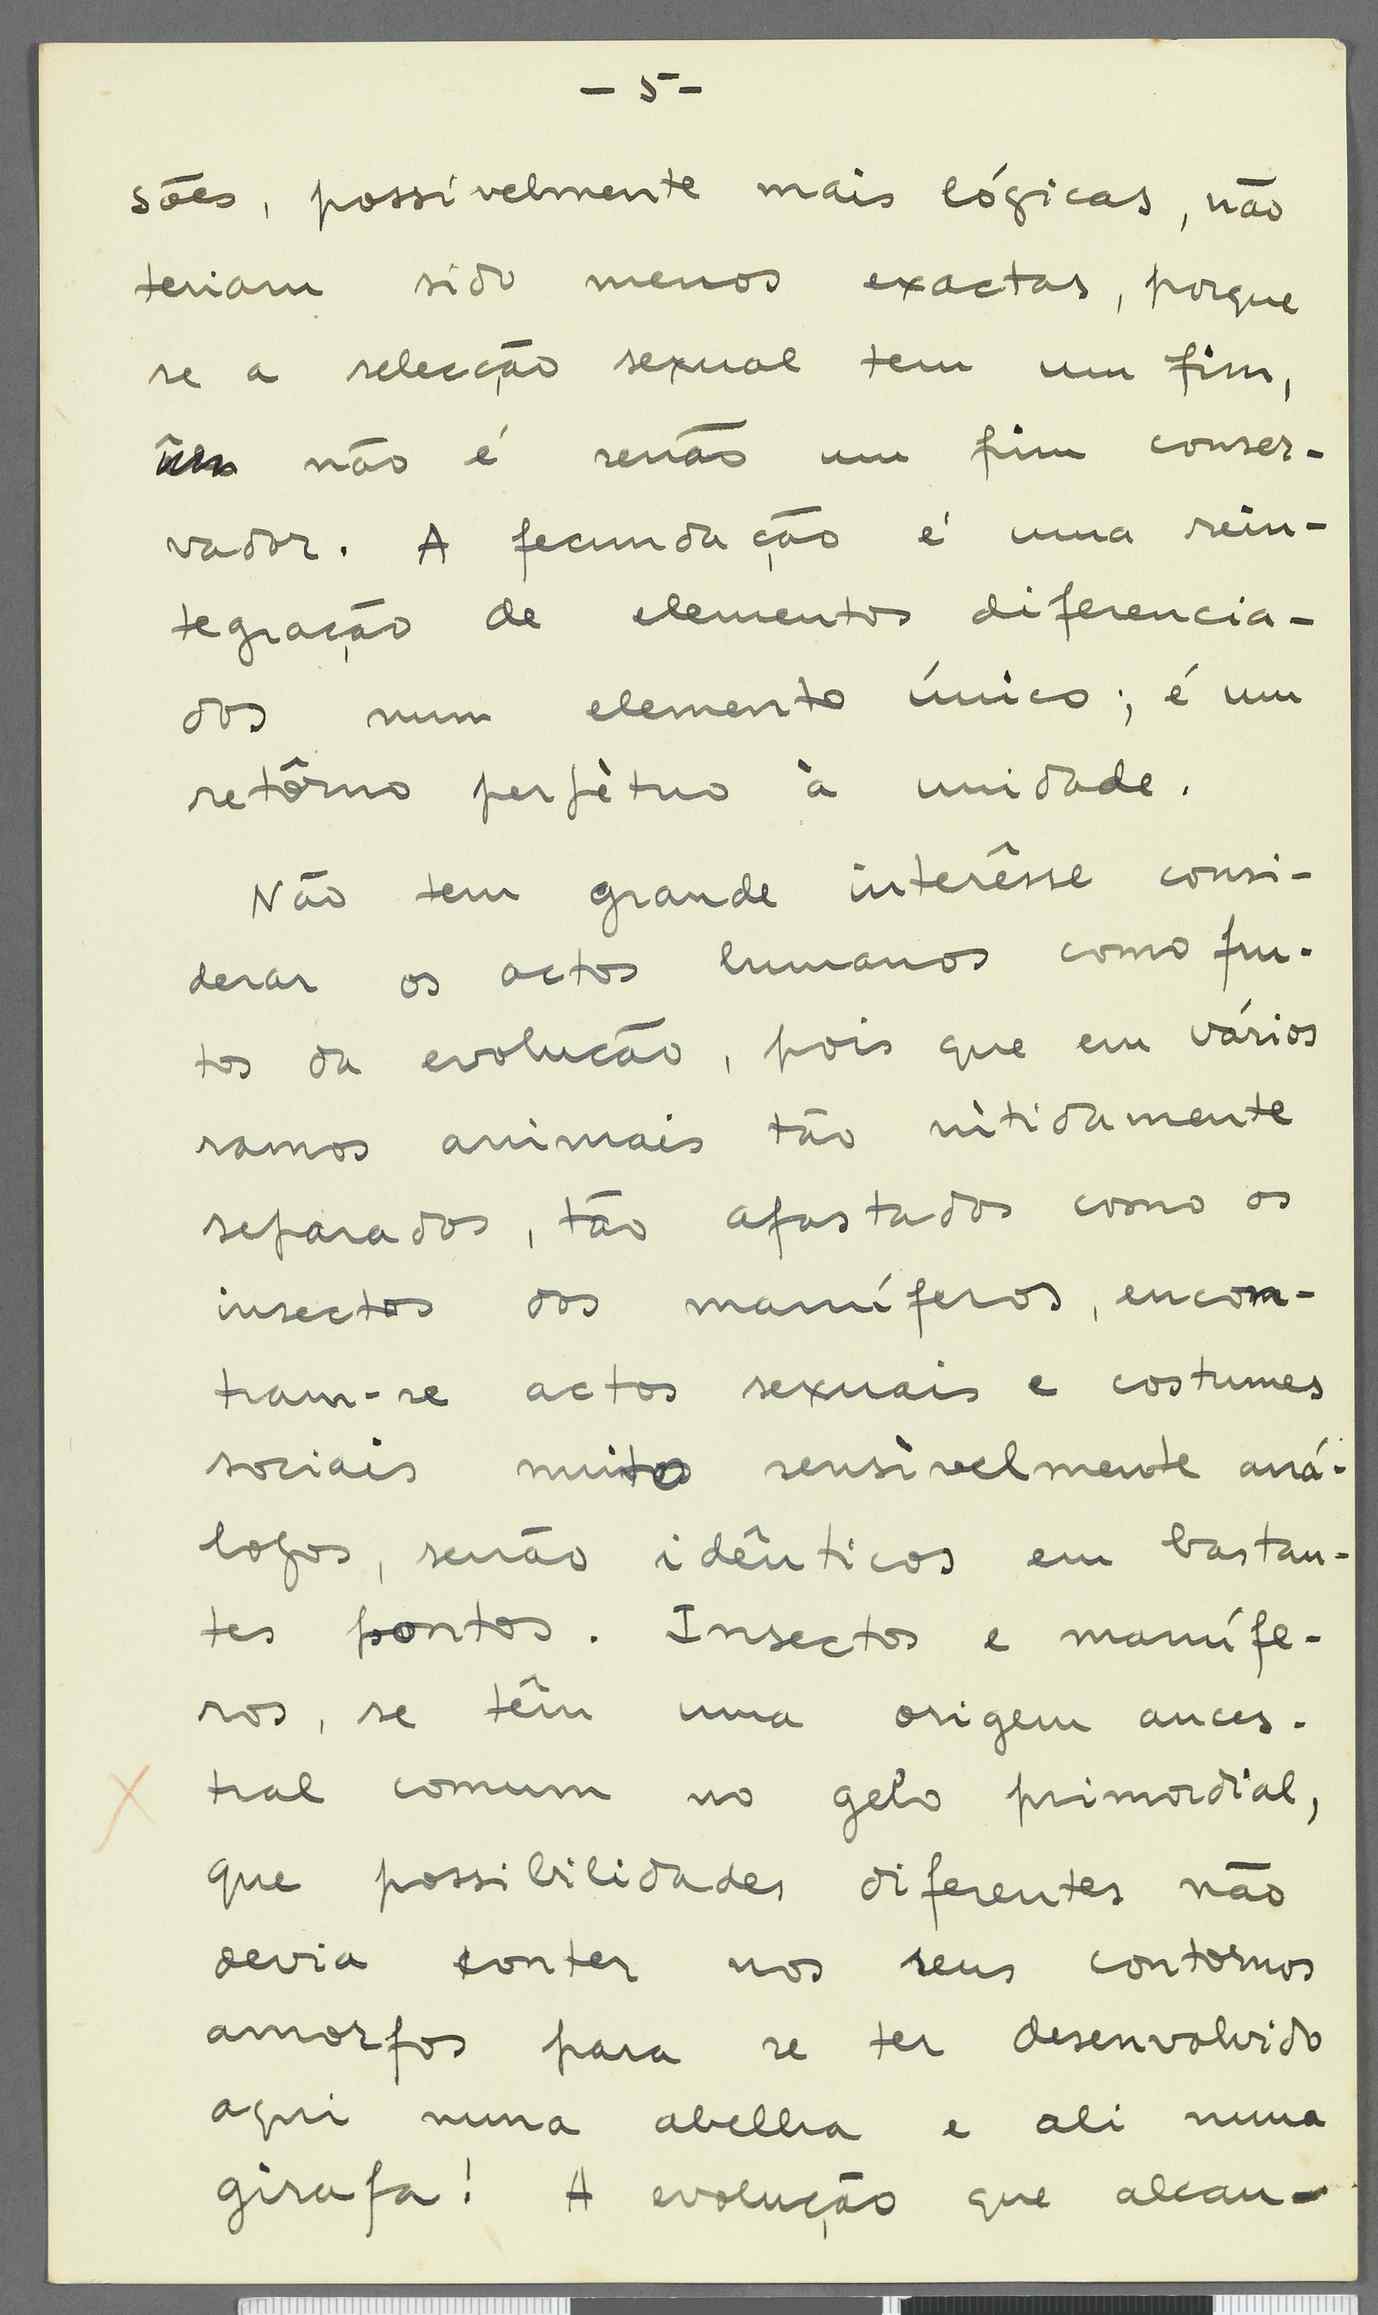 - 5 -
sões, possívelmente mais lógicas, não
teriam sido menos exactas, porque
se a selecção sexual tem um fim,
não é senão um fim conser-
vador. A fecundação é uma rein-
tegração de elementos diferencia-
dos num elemento único; é um
retôrno perpètuo à unidade.
Não tem grande interêsse consi-
derar os actos humanos como fru-
tos da evolucão, pois que em vários
ramos animais tão nìtidamente
separados, tão afastados como os
insectos dos mamíferos, encon-
tram-se actos sexuais e costumes
sociais muito sensìvelmente aná-
logos, senão idênticos em bastan-
tes pontos. Insectos e mamífe-
ros, se têm uma origem ances-
tral comum no gelo primordial,
que possibilidades diferentes não
devia conter nos seus contornos
amorfos para se ter desenvolvido
aqui numa abelha e ali numa
girafa! A evolução que alcan-